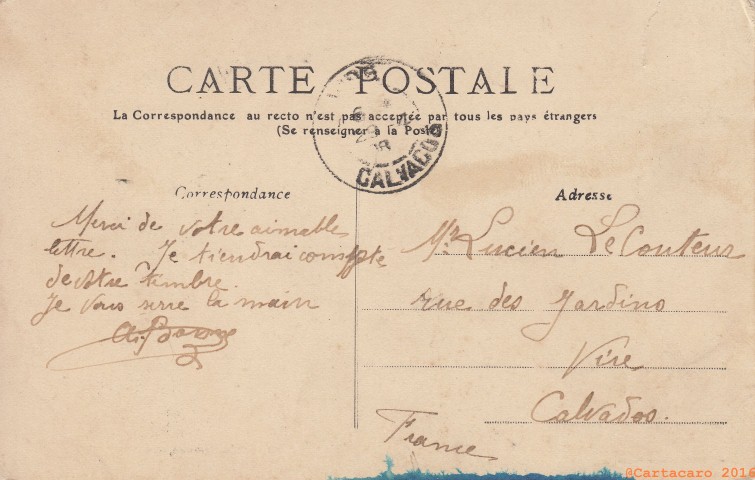 CARTE POSTALE
La Correspondance au recto n'est pas acceptée par tous les pays étrangers
(Se renseigner à la Poste
CALVADOS
Correspondance
Merci de votre aimable
lettre. Je tiendrai compte
de votre timbre.
Je vous serre la main
Adresse
Mr. Lucien LeCouteur
rue des Jardins
Vire
Calvados.
France
@Cartacaro 2016